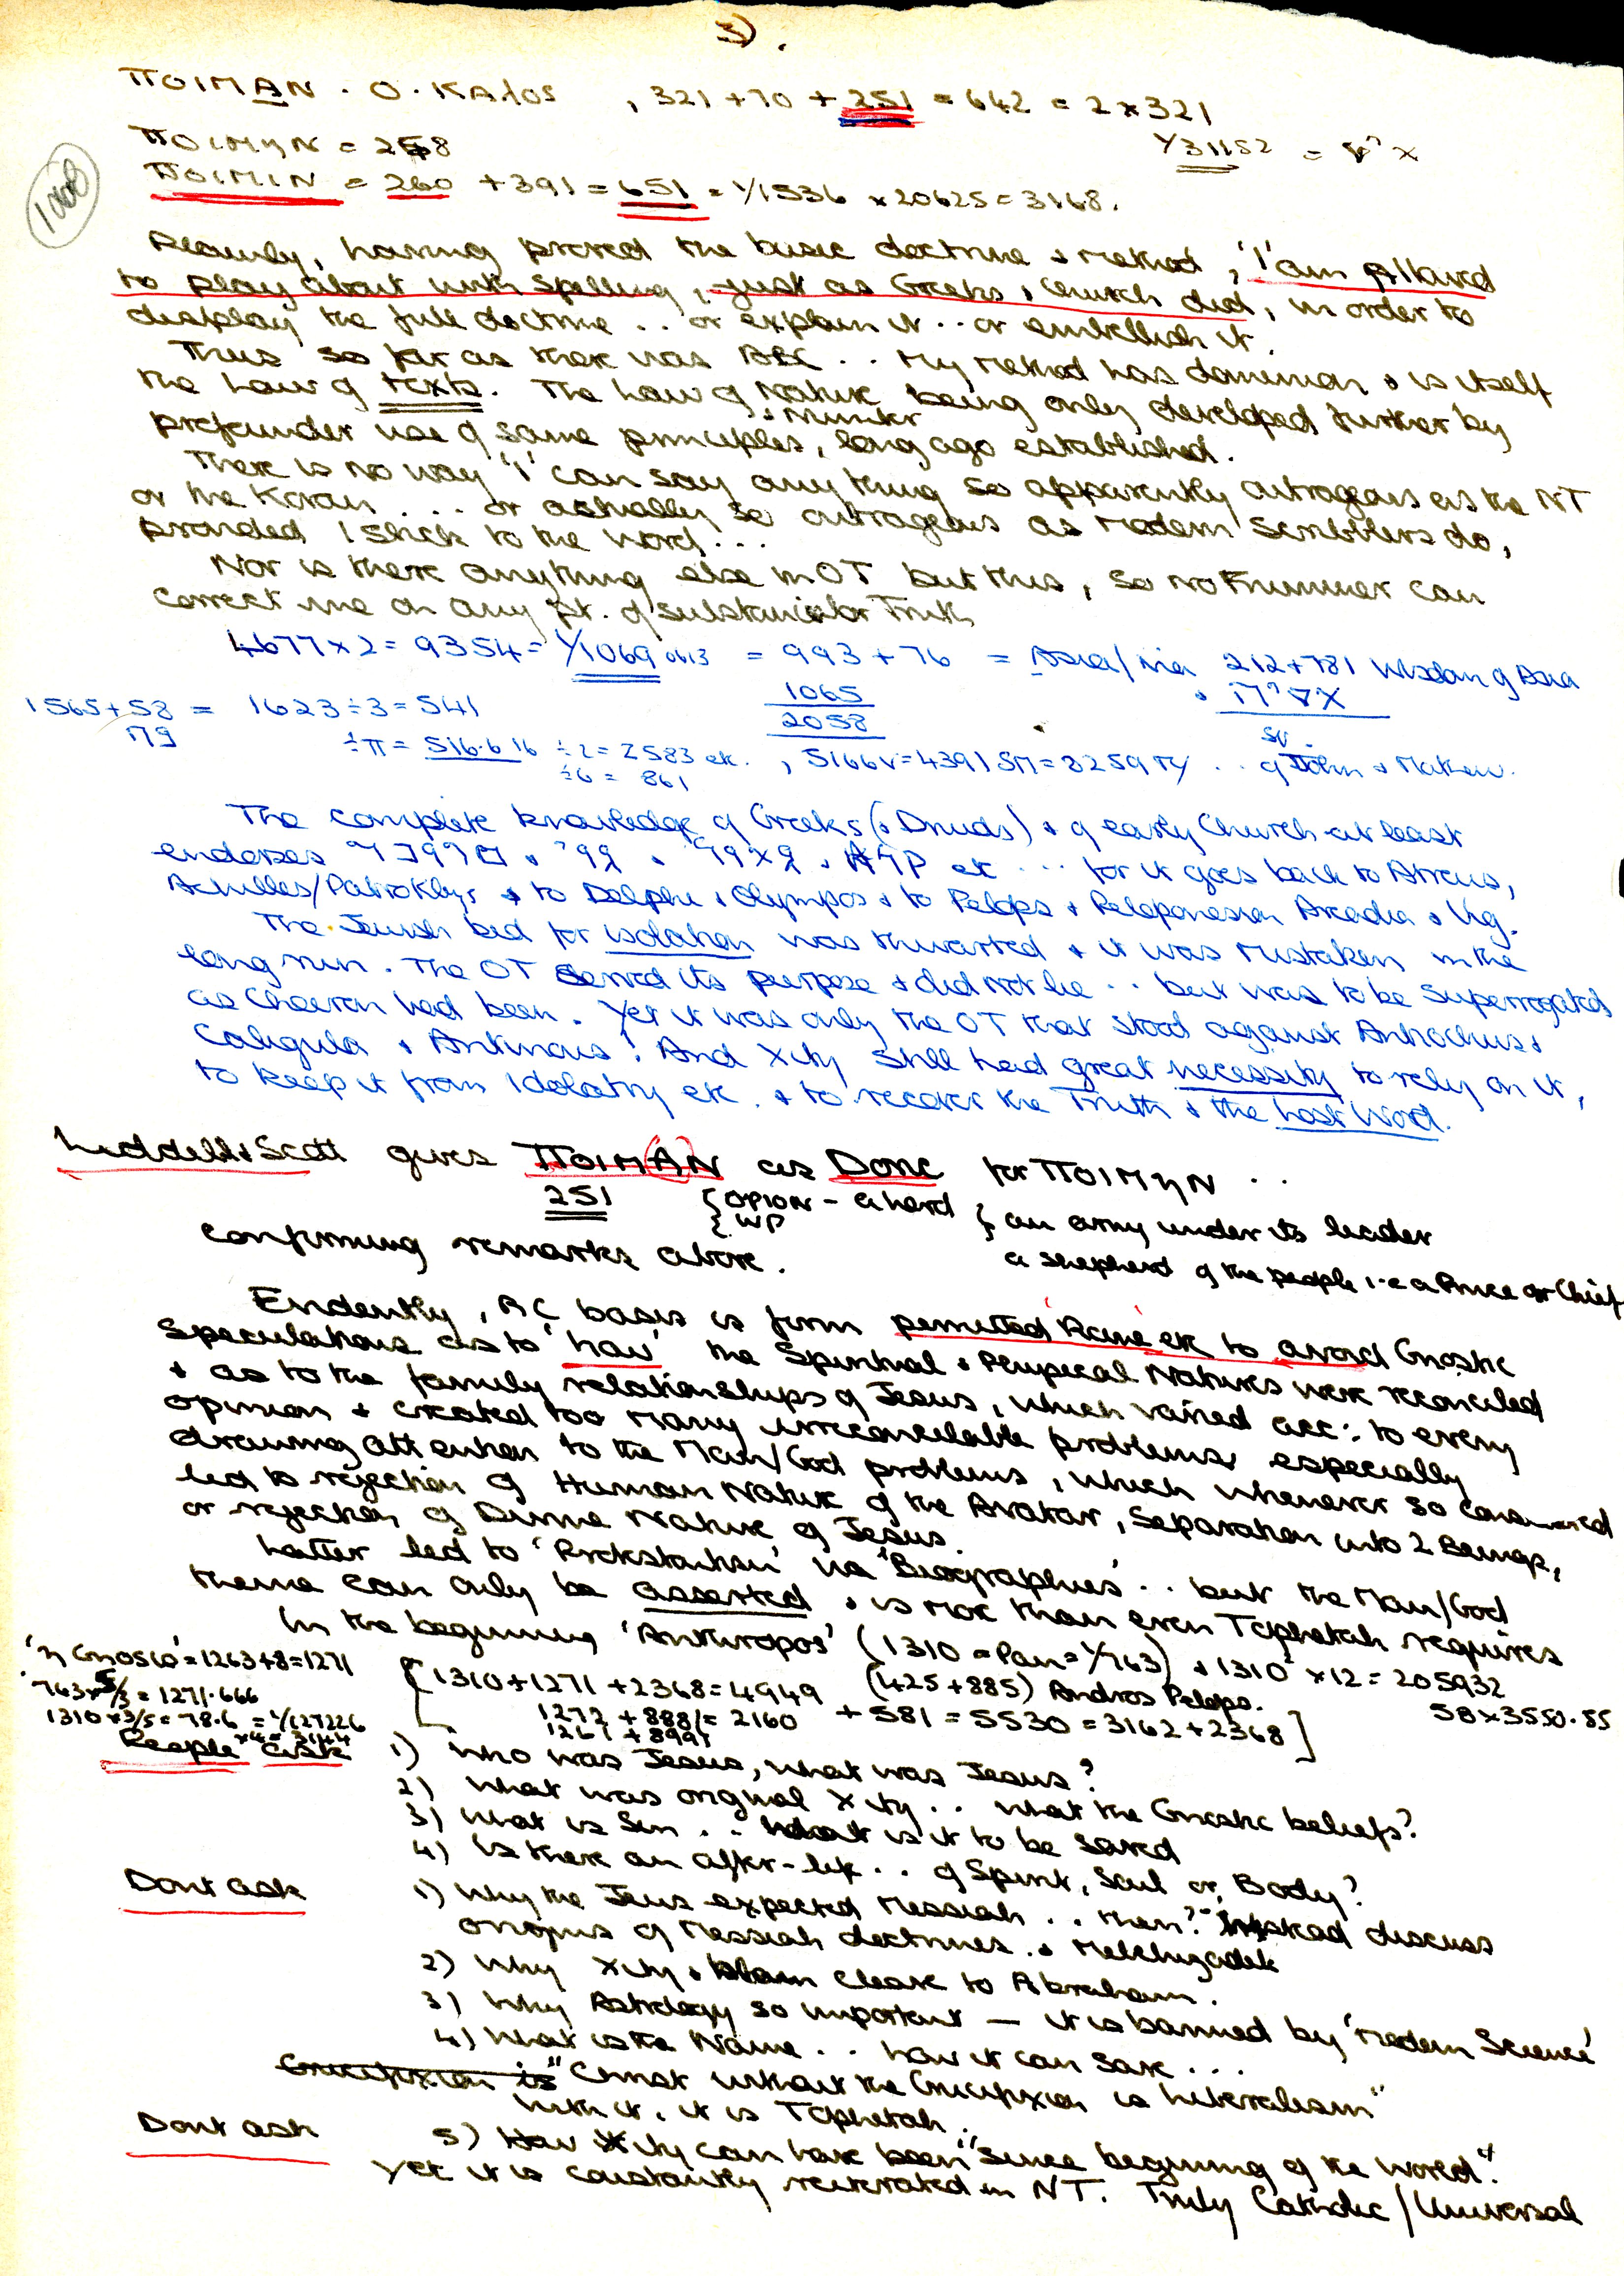 3).
ΠΟΙΜΑΝ . Ο . ΚΑλΟS , 321 + 70 + 251 = 642 = 2 x 321
ΠΟΙΜηΝ = 258
1/31152 =
1008
ΠΟΙΜΙΝ = 260 + 391 = 651 = 1/1536 x 20625 = 3168.
Plainly, having proved the basic doctrine & method, 'I' am allowed
to play about with spelling, just as Greeks & Church did, in order to
display the full doctrine .. or explain it .. or embellish it.
Thus so far as there was ABC .. my method has dominion & is itself
the Law of texts. The Law of Nature & Number being only developed further by
profounder use of same principles, long ago established.
There is no way 'I' can say any thing so apparently outrageous as the NT
or the Koran .... or actually so outrageous as modern scribblers do,
provided I stick to the word ...
Nor is there anything else in OT but this, so no Frummer can
correct me on any pt. of substance or Truth
4677 x 2 = 9354 = 1/1069 0613 = 993 + 76 = 212 + 781 Wisdom of
1065
2058
1565 + 58 = 1623 ÷ 3 = 541
÷ π = 516.616 ÷ 2 = 2583 etc. , 5166 = 4391 = 8259 .. of St. John & Mathew.
÷ 6 = 861
The complete knowledge of Greeks (& Druids) & of early Church at least
endorses etc ... for it goes back to Atreus,
Achilles/Patroklys & to Delphi & Olympos & to Pelops & Peloponesian Arcadia &
The Jewish bid for isolation was thwarted & it was mistaken in the
long run. The OT served its purpose & did not lie .. but was to be superrogated
as Cheeron had been. Yet it was only the OT that stood against Antiochus &
Caligula & Antinous! And Xity still had great necessity to rely on it,
to keep it from Idolatry etc. & to recover the Truth & the Lost Word.
Liddell & Scott gives ΠΟΙΜΑΝ as Doric for ΠΟΙΜηΝ ..
251 { OPION - a herd } an army under its leader
{ WP
confirming remarks above. a shepherd of the people i.e a Prince or Chief
Evidently, RC basis is form permitted Rome etc to avoid Gnostic
Speculations as to 'how' the Spiritual & Physical Natures were reconciled
& as to the family relationships of Jesus, which varied acc: to every
opinion & created too many irreconcilable problems especially
drawing attention to the Man/God problems, which whenever so
led to rejection of Human Nature of the Avatar, Separation into 2 Beings,
or rejection of Divine Nature of Jesus.
Latter led to 'Protestantism' via 'Biographies' .. but the Man/God
theme can only be asserted, & is more than even Tiphetah requires
In the beginning 'Anthropos' (1310 = Pan = 1/763) & 1310² x 12 = 205932
'η Gnosis' = 1263 + 8 = 1271
763 x 5/3 = 1271.666
1310 x 3/5 = 78.6 = 1/127226
x 4 = 3144
[1310 + 1271 + 2368 = 4949 (425 + 885) Andros Pelops.
1272 + 888 = 2160 + 581 = 5530 = 3162 + 2368]
1261 + 899
58 x 3550.55
People ask 1) Who was Jesus, what was Jesus?
2) What was original Xity .. what the Gnostic beliefs?
3) What is Sin .. what is it to be saved
4) Is there an after-life .. of Spirit, Soul or Body?
Dont ask 1) Why the Jews expected Messiah .. then? Instead discuss
origins of Messiah doctrines & Melchizadek
2) Why Xity & Islam cleave to Abraham.
3) Why Astrology so important — it is banned by 'Modern Science'
4) What is the Name .. how it can save ...
Crucifixion is "Christ without the Crucifixion is Liberalism"
with it, it is Tiphetah.
Dont ask 5) How Xity can have been "since beginning of the World".
Yet it is constantly reiterated in NT. Truly Catholic / Universal